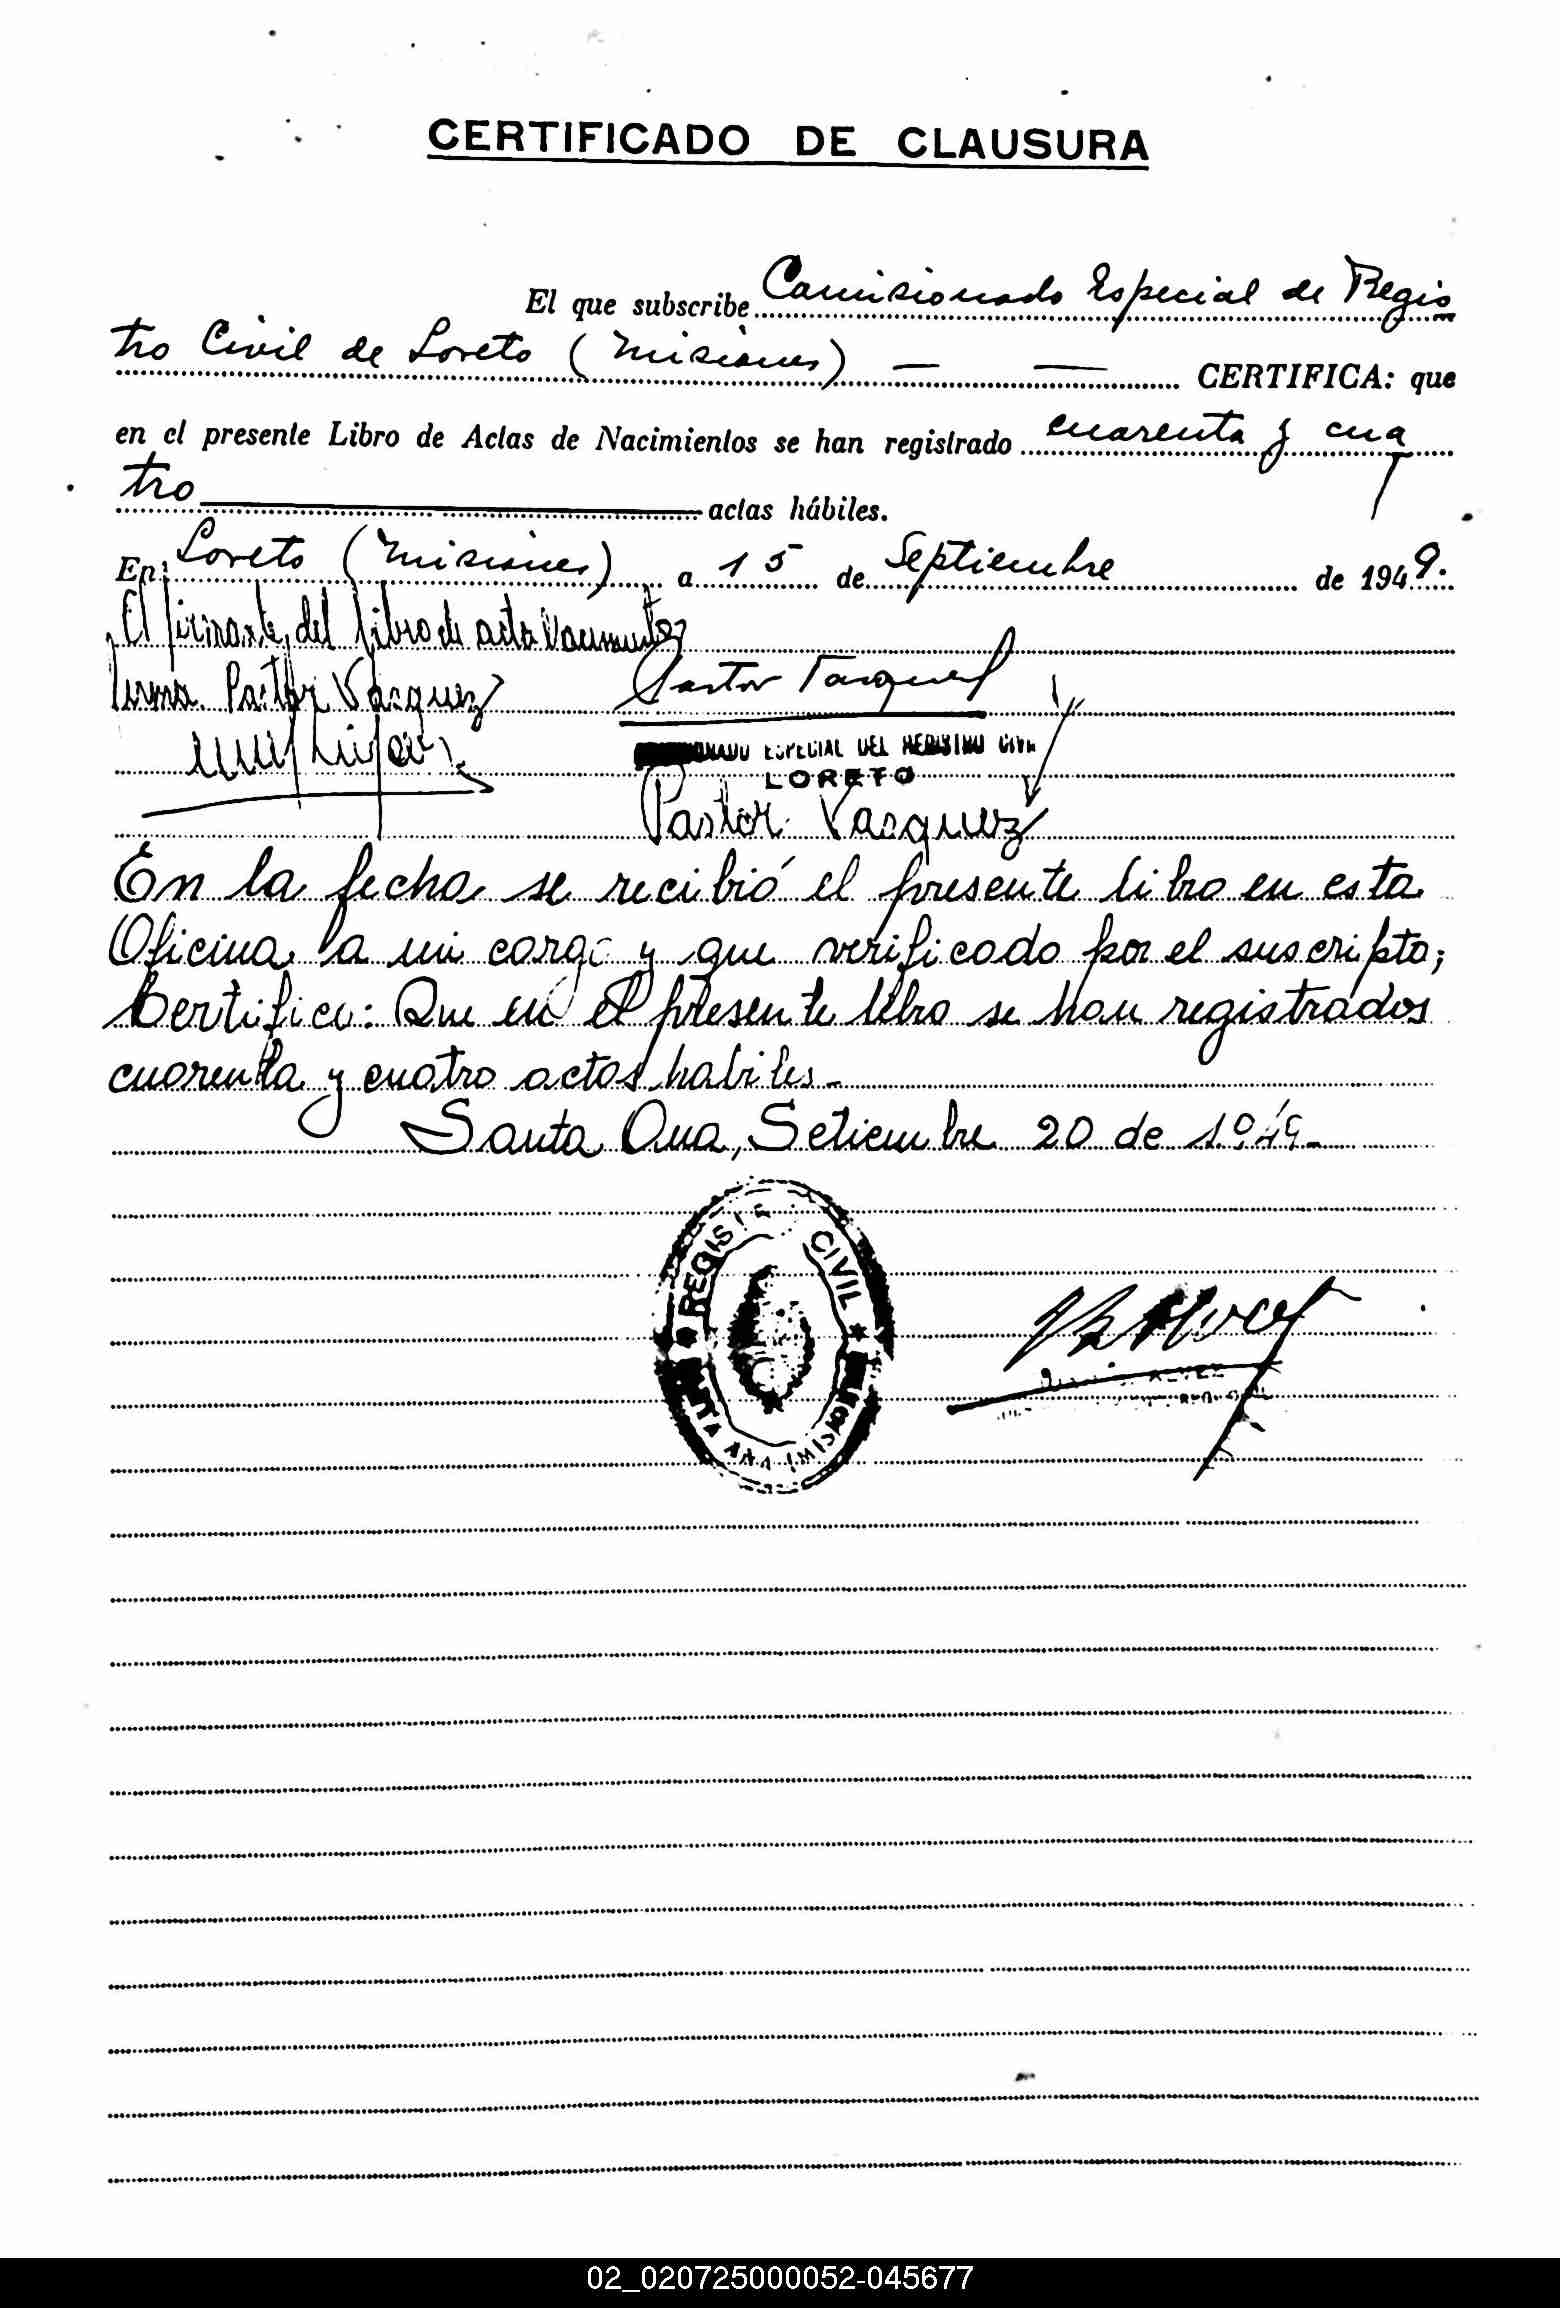 CERTIFICADO DE CLAUSURA
El que subscribe Comisionado Especial de Regis
tro Civil de Loreto (Misiones) — — CERTIFICA: que
en el presente Libro de Actas de Nacimientos se han registrado cuarenta y cua
tro actas hábiles.
En Loreto (Misiones) a 15 de Septiembre de 1949.
El firmante, del libro de acta Nacimientos
firma Pastor Vasquez
Pastor Vasquez
ESPECIAL DEL REGISTRO CIVIL
LORETO
Pastor Vasquez
En la fecha se recibió el presente libro en esta
Oficina a mi cargo y que verificado por el suscripto;
Certifico: Que en el presente libro se han registrados
cuarenta y cuatro actas habiles.-
Santa Ana, Setiembre 20 de 1949.-
REGIST CIVIL
TA ANA (MISION
ALVEZ
02_020725000052-045677